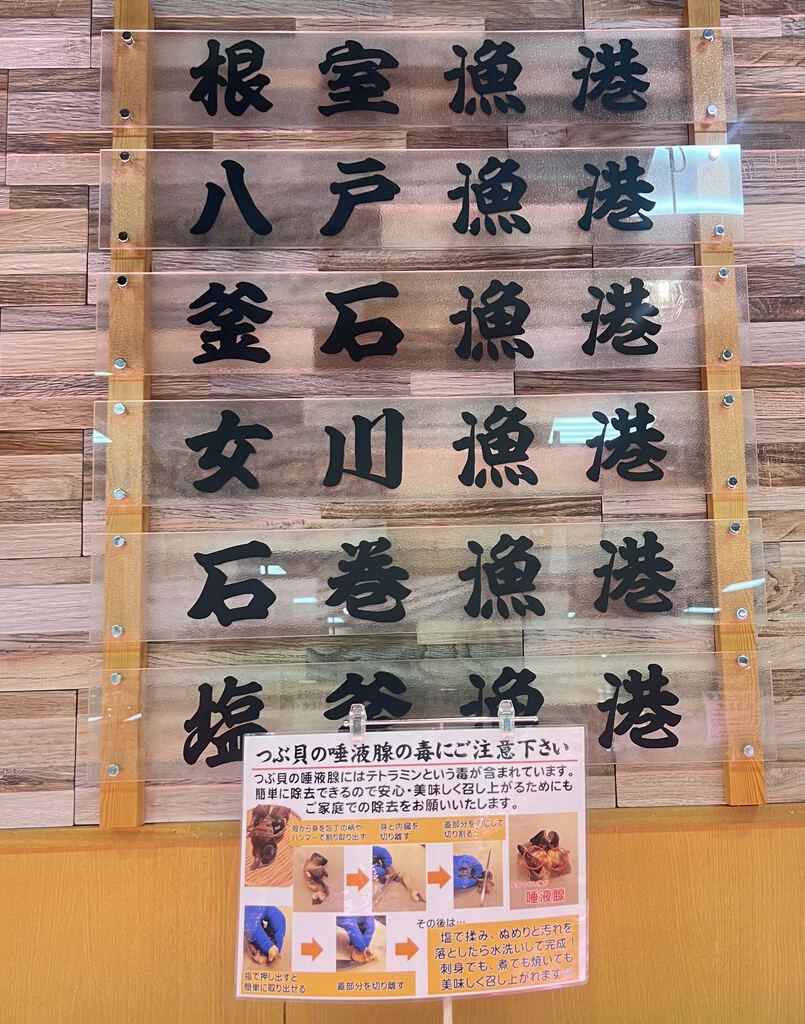 根室漁港
八戸漁港
釜石漁港
女川漁港
石巻漁港
塩釜漁港
つぶ貝の唾液腺の毒にご注意下さい
つぶ貝の唾液腺にはテトラミンという毒が含まれています。
簡単に除去できるので安心・美味しく召し上がるためにも
ご家庭での除去をお願いいたします。
殻から身を包丁の柄や
ハンマーで割り取り出す
身と内臓を
切り離す
蓋部分を下にして
切り割る
唾液腺
指で押し出すと
簡単に取り出せる
蓋部分を切り離す
その後は…
塩で揉み、ぬめりと汚れを
落としたら水洗いして完成！
刺身でも、煮ても焼いても
美味しく召し上がれます